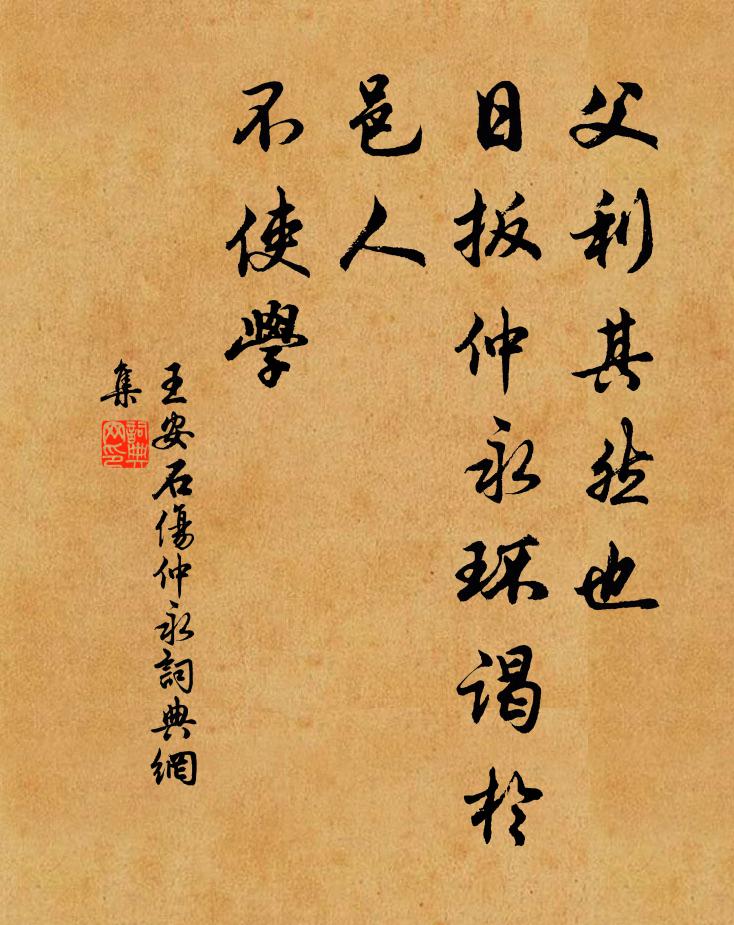 父利其然也
日扳仲永环谒於
邑人
不使學
王安石傷仲永詞典網
集
詞典
网印